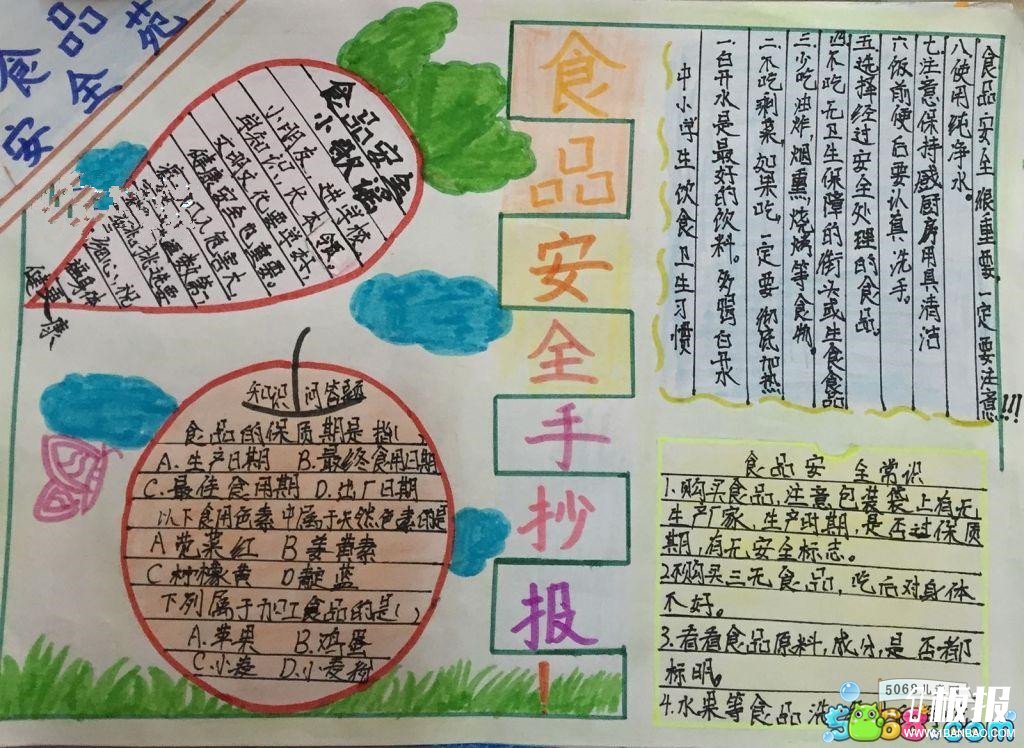 食品
安全
苑
食品安全
小歌谣
小朋友,进学校
学知识,长本领。
文明文化要学好,
健康安全也重要。
健康
食品安全手抄报!
中小学生饮食卫生习惯
一白开水是最好的饮料。多喝白开水
二.不吃剩菜,如果吃,一定要彻底加热
三少吃油炸,烟熏烧烤等食物。
四不吃无卫生保障的街头或生食食品
五选择经过安全处理的食品。
六饭前便后要认真洗手。
七.注意保持感厨房用具清洁
八使用纯净水。
食品安全很重要,一定要注意!!!
知识问答题
食品的保质期是指( )
A.生产日期 B.最终食用日期
C.最佳食用期 D.出厂日期
以下食用色素中属于天然色素的是
A苋菜红 B姜黄素
C柠檬黄 D靛蓝
下列属于加工食品的是( )
A.苹果 B.鸡蛋
C.小麦 D.小麦粉
食品安全常识
1.购买食品,注意包装袋上有无
生产厂家、生产时期,是否过保质
期,有无安全标志。
2不购买三无食品,吃后对身体
不好。
3.看看食品原料,成分,是否都
标明。
4.水果等食品洗
5068儿童
5068.com
板报
WWW.1BANBAO.COM